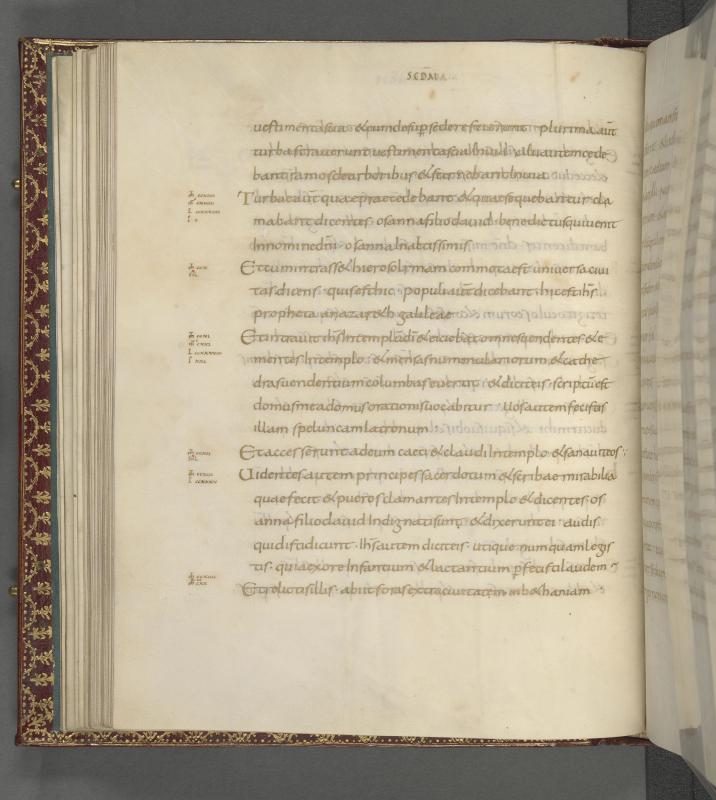 SCDM
uestimenta sua · & eum desup sedere fecerunt · plurima aut
turba strauerunt uestimenta sua In uia · alii autem cede
bant ramos de arboribus & sternebant In uia
Turbae aut quae praecedebant · & quae sequebantur cla
mabant dicentes · osanna filio dauid · benedictus qui uenit
In nomine dni · osanna In altissimis
Et cum intrass& hierosolimam commota est uniuersa ciui
tas dicens · quis est hic · populi aut dicebant · hic est ihs
propheta a nazar&h galileae
Et intrauit ihs In templum di & eiciebat omnes uendentes & e
mentes In templo · & mensas numulariorum & cathe
dras uendentium columbas euertit · & dicit eis · scriptu est
domus mea domus orationis uocabitur · Uos autem fecistis
illam speluncam latronum
Et accesserunt ad eum caeci & claudi In templo & sanauit eos
Uidentes autem principes sacerdotum & scribae mirabilia
quae fecit & pueros clamantes In templo & dicentes · os
anna filio dauid Indignati sunt · & dixerunt ei · audis
quid isti dicunt · Ihs autem dicit eis · utique numquam legis
tis · quia ex ore Infantium & lactantium pfecisti laudem
Et relictis illis · abiit foras extra ciuitatem in b&haniam